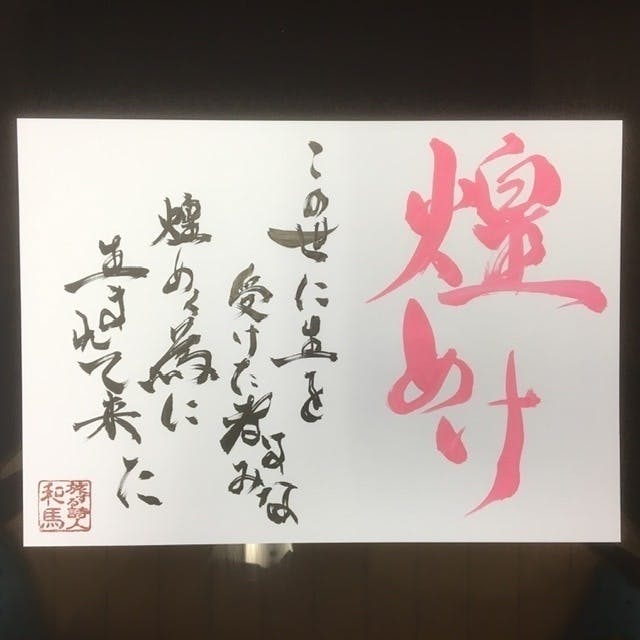 煌めけ
この世に生を
受けた者はみな
煌めく為に
生まれて来た
詩人
和馬